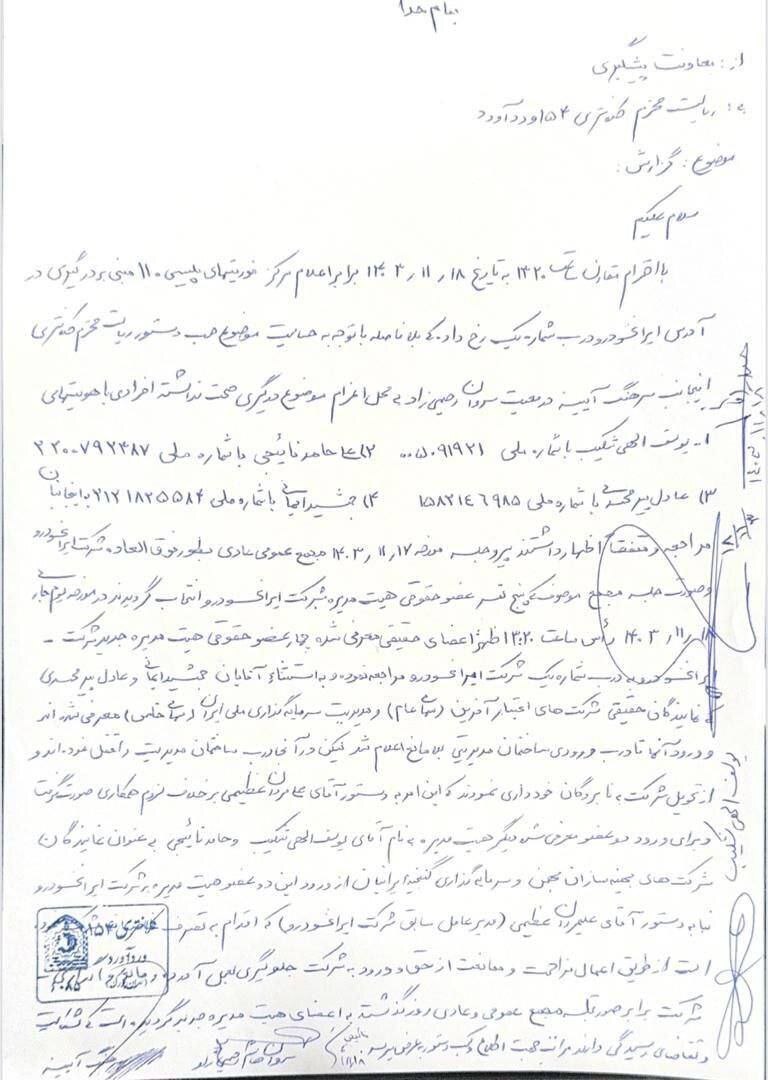 بنام خدا
از: معاونت پیشگیری
به: ریاست محترم کلانتری ۱۵۴ وردآورد
موضوع: گزارش:
سلام علیکم
با احترام مقارن ساعت ۱۳:۲۰ به تاریخ ۱۴۰۳/۱۱/۱۸ برابر اعلام مرکز فوریتهای پلیسی ۱۱۰ مبنی بر درگیری در
آدرس ایرانخودرو درب شماره یک رخ داده که بلافاصله با توجه به حساسیت موضوع حسب دستور ریاست محترم کلانتری
اینجانب سرهنگ آیینه در معیت ستوان رحیمی راد به محل اعزام موضوع درگیری صحت نداشته افرادی با هویتهای
۱- یوسف الهی شکیب با شماره ملی ۰۰۵۰۹۱۹۲۱ ۲) حامد نائیجی با شماره ملی ۲۲۰۰۷۹۲۴۸۷
۳) عادل پیرمحمدی با شماره ملی ۱۵۸۲۱۴۶۹۸۵ ۴) جمشید ایمانی با شماره ملی ۲۱۲۱۸۲۵۵۸۴ به اینجانبان
مراجعه و متفقاً اظهار داشتند پیرو جلسه مورخه ۱۴۰۳/۱۱/۱۷ مجمع عمومی عادی بطور فوق العاده شرکت ایرانخودرو
و صورت جلسه مجمع موصوف که پنج نفر عضو حقوقی هیت مدیره شرکت ایرانخودرو انتخاب گردیدند در مورخه یوم جاری
۱۴۰۳/۱۱/۱۸ رأس ساعت ۱۳:۲۰ ظهر اعضای حقیقی معرفی شده چهار عضو حقوقی هیت مدیره جدید شرکت -
ایرانخودرو به درب شماره یک شرکت ایرانخودرو مراجعه نموده و به استثناء آقایان جمشید ایمانی و عادل پیرمحمدی
که نمایندگان حقیقی شرکت های اعتبار آفرین (سهامی عام) و مدیریت سرمایه گذاری ملی ایران (سهامی خاص) معرفی شده اند
و ورود آنها تا درب ورودی ساختمان مدیریتی بلامانع اعلام شد لیکن در آنجا درب ساختمان مدیریت را قفل نموده اند و
از تحویل شرکت به نامبردگان خودداری نمودند که این امر به دستور آقای علیمردان عظیمی بر خلاف لزوم همکاری صورت گرفت
و برای ورود دو عضو معرفی شده دیگر هیت مدیره به نام آقای یوسف الهی شکیب و حامد نائیجی به عنوان نمایندگان
شرکت های بهینه سازان بهمن و سرمایه گذاری گنجینه ایرانیان از ورود این دو عضو هیت مدیره به شرکت ایرانخودرو
بنا به دستور آقای علیمردان عظیمی (مدیر عامل سابق شرکت ایرانخودرو) که اقدام به تصرف
است از طریق اعمال مزاحمت و ممانعت از حق و ورود به شرکت جلوگیری بعمل آمده و مانع
شرکت برابر صورتجلسه مجمع عمومی و عادی روز گذشته به اعضای هیت مدیره جدید گردیده است که شکایت
و تقاضای رسیدگی دارند مراتب جهت اطلاع و کسب دستور بعرض میرسد
۱۴۰۳/۱۱/۱۸
یوسف الهی شکیب
کلانتری ۱۵۴
وردآورد
سرهنگ آیینه